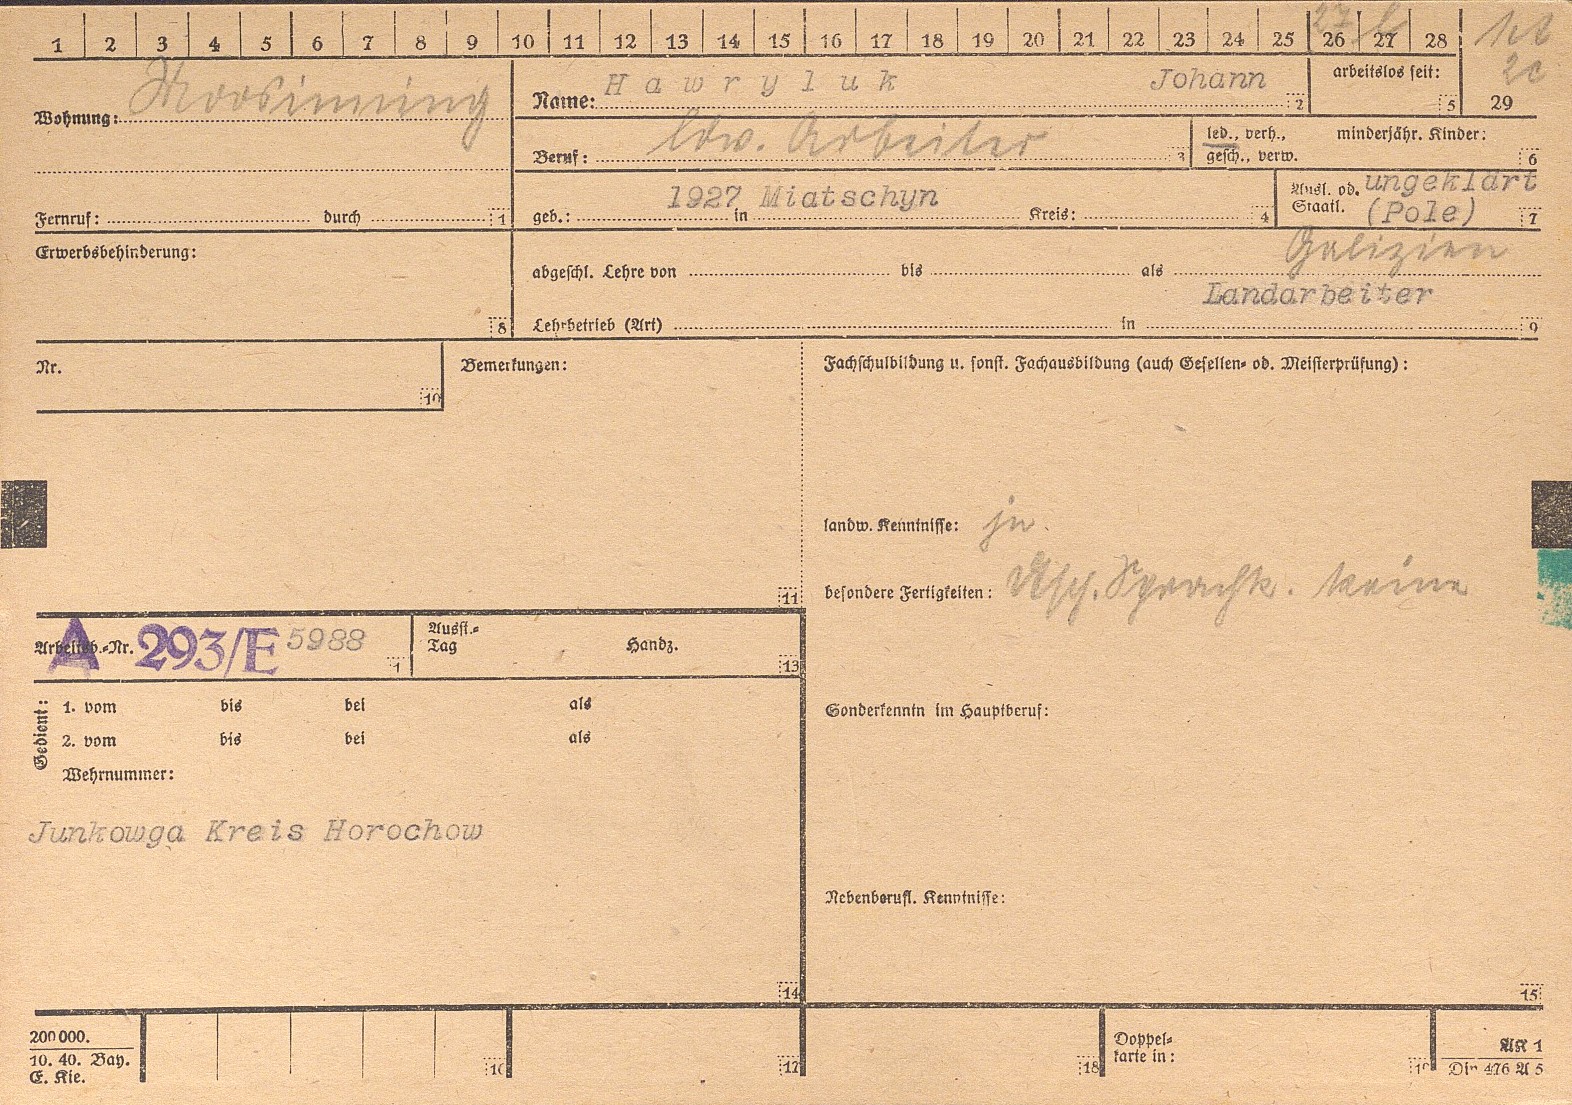 1 2 3 4 5 6 7 8 9 10 11 12 13 14 15 16 17 18 19 20 21 22 23 24 25 26 27 28 29
27
Wohnung: Moosinning
Name: Hawryluk Johann 2
arbeitslos seit: 5
Beruf: ldw. Arbeiter 3
led., verh., gesch., verw.
minderjähr. Kinder: 6
Fernruf: durch 1
geb.: 1927 in Miatschyn Kreis: 4
Ausl. od. Staatl. ungeklärt (Pole) 7
Galizien
Erwerbsbehinderung: 8
abgeschl. Lehre von bis als
Landarbeiter
Lehrbetrieb (Art) in 9
Nr. 10
Bemerkungen: 11
Fachschulbildung u. sonst. Fachausbildung (auch Gesellen- od. Meisterprüfung):
landw. Kenntnisse: ja.
besondere Fertigkeiten: Dtsch. Sprachk. keine
Arbeitsb.-Nr. A 293/E 5988
Ausst.-Tag Handz. 13
Sonderkenntn im Hauptberuf:
Gedient:
1. vom bis bei als
2. vom bis bei als
Wehrnummer:
Junkowga Kreis Horochow
14
Nebenberufl. Kenntnisse:
15
200 000.
10. 40. Bay.
E. Kie.
16 17 18
Doppelkarte in: 19
AK 1
Din 476 A 5